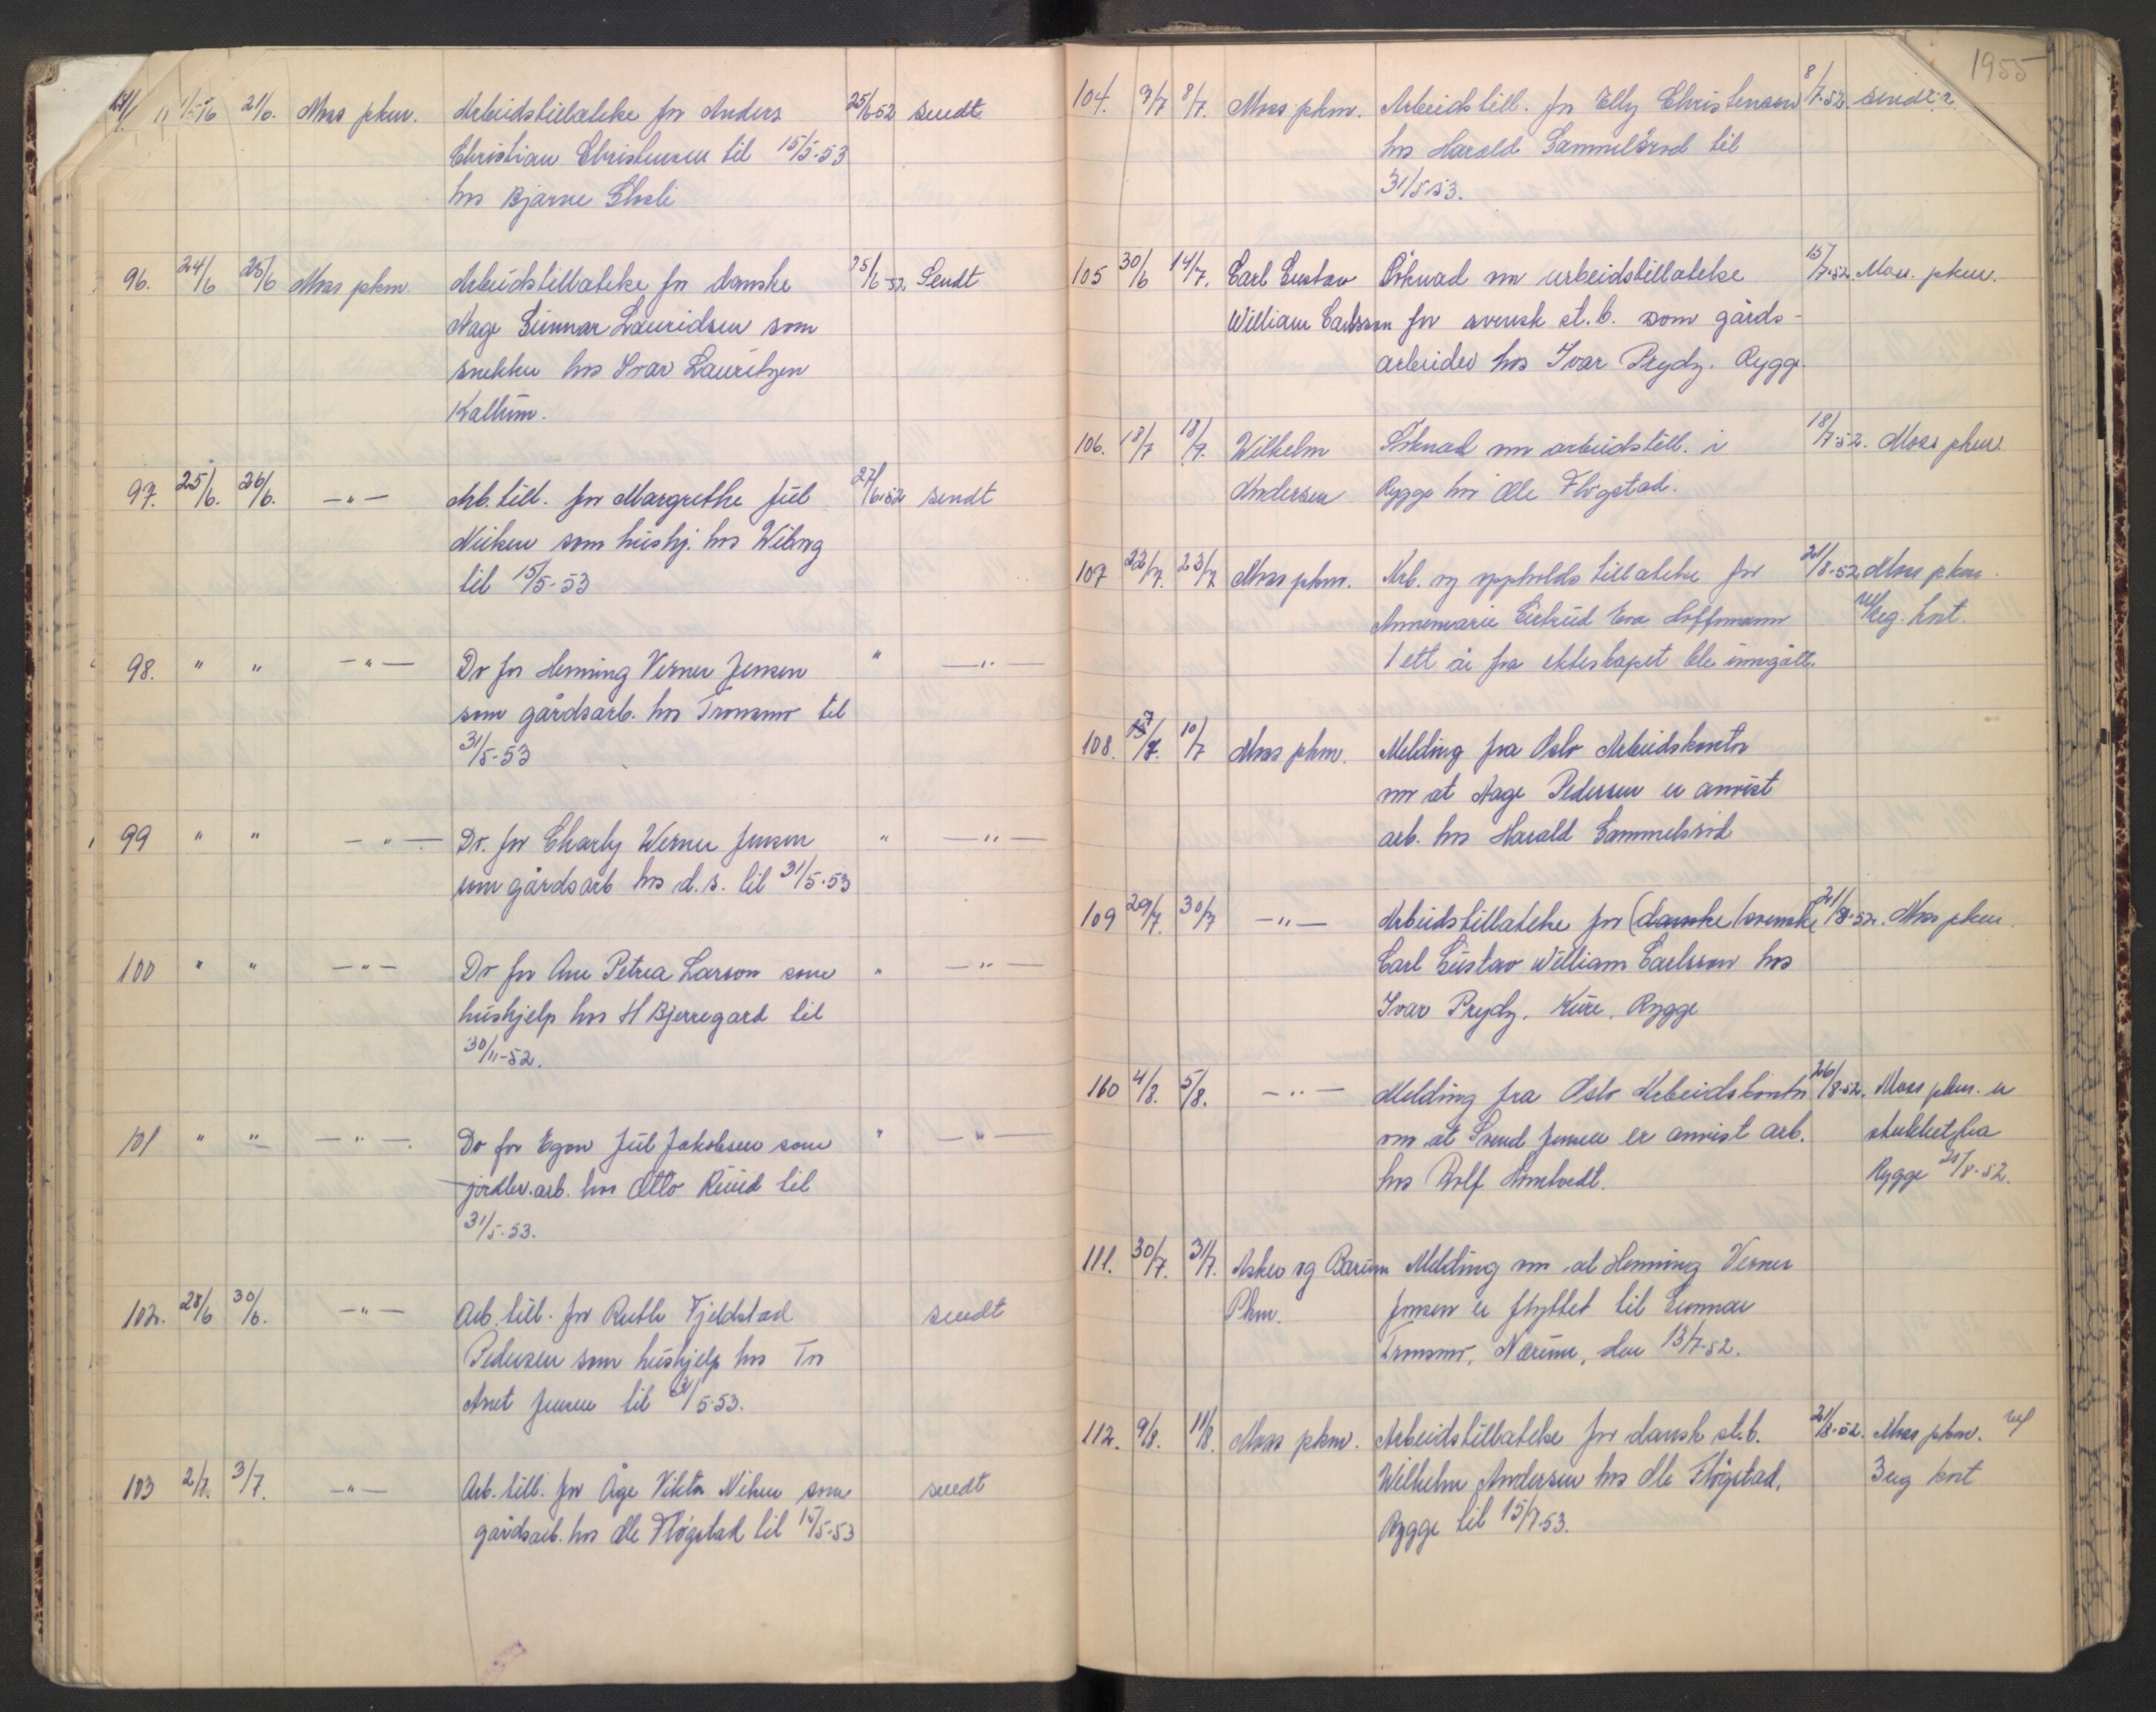 21/6. Moss pkm. Arbeidstillatelse for Anders 25/6-52 sendt
Christian Christensen til 15/5-53
hos Bjarne
96. 24/6 25/6 Moss pkm. Arbeidstillatelse for danske 25/6-52 Sendt
Aage Gunnar Lauridsen som
snekker hos Ivar Lauritzen
Kallum.
97. 25/6. 26/6. —"— Arb. till. for Margrethe Juel 27/6-52 sendt
som hushj. hos Wiborg
til 15/5-53
98. " " —"— Do for Henning Verner Jensen " —"—
som gårdsarb. hos Tronsmo til
31/5-53
99 " " —"— Do. for Charly Werner Jensen " —"—
som gårdsarb hos d. s. til 31/5-53
100 " " —"— Do for Ane Petrea Larson som " —"—
hushjelp hos H Bjerregard til
30/11-52.
101 " " —"— Do for Egon Juul Jakobsen som " —"—
jordbr. arb. hos Otto Ruud til
31/5-53.
102. 28/6 30/6. —"— Arb. till. for Ruth Fjeldstad sendt
Pedersen som hushjelp hos Tor
Jensen til /5-53.
103 2/7. 3/7. —"— Arb. till. for Åge Viktor som sendt
gårdsarb. hos Ole Fløgstad til 15/5-53
1955
104. 3/7 8/7. Moss pkm. Arbeidstill. for Elly Christensen 8/7-52. sendt
hos Harald Gammelsrød til
31/5-53.
105 30/6 14/7. Carl Gustav Søknad om arbeidstillatelse 15/7-52. Moss. pkm.
William Carlsson for svensk st. b. som gårds-
arbeider hos Ivar Prydz. Rygge.
106. 18/7 18/7. Wilhelm Søknad om arbeidstill. i 18/7-52. Moss pkm.
Andersen Rygge hos Ole Fløgstad.
107 22/7. 23/7 Moss pkm. Arb. og oppholdstillatelse for 21/8-52 Moss pkm.
Annemarie Gertrud Eva Hoffmann reg. kort.
1 ett år fra ekteskapet ble inngått.
108. 7/7. 10/7 Moss pkm. Melding fra Oslo Arbeidskontor
om at Aage Pedersen er anvist
arb. hos Harald Gammelsrød
109 29/7. 30/7 —"— Arbeidstillatelse for (danske) svenske 21/8-52. Moss pkm.
Carl Gustav William Carlsson hos
Ivar Prydz, Kure, Rygge
110 4/8. 5/8. —"— Melding fra Oslo Arbeidskontor 26/8-52. Moss pkm. er
om at Svend Jensen er anvist arb.
hos Rolf Tomtvedt. Rygge 20/8-52.
111. 30/7. 31/7. Asker og Bærum Melding om at Henning Verner
Pkm. Jensen er flyttet til Gunnar
Tronsmo, Nærum, den 13/7-52.
112. 9/8. 11/8. Moss pkm. Arbeidstillatelse for dansk st. b. 21/8-52. Moss pkm.
Wilhelm Andersen hos Ole Fløgstad, 3 reg kort
Rygge til 15/7-53.